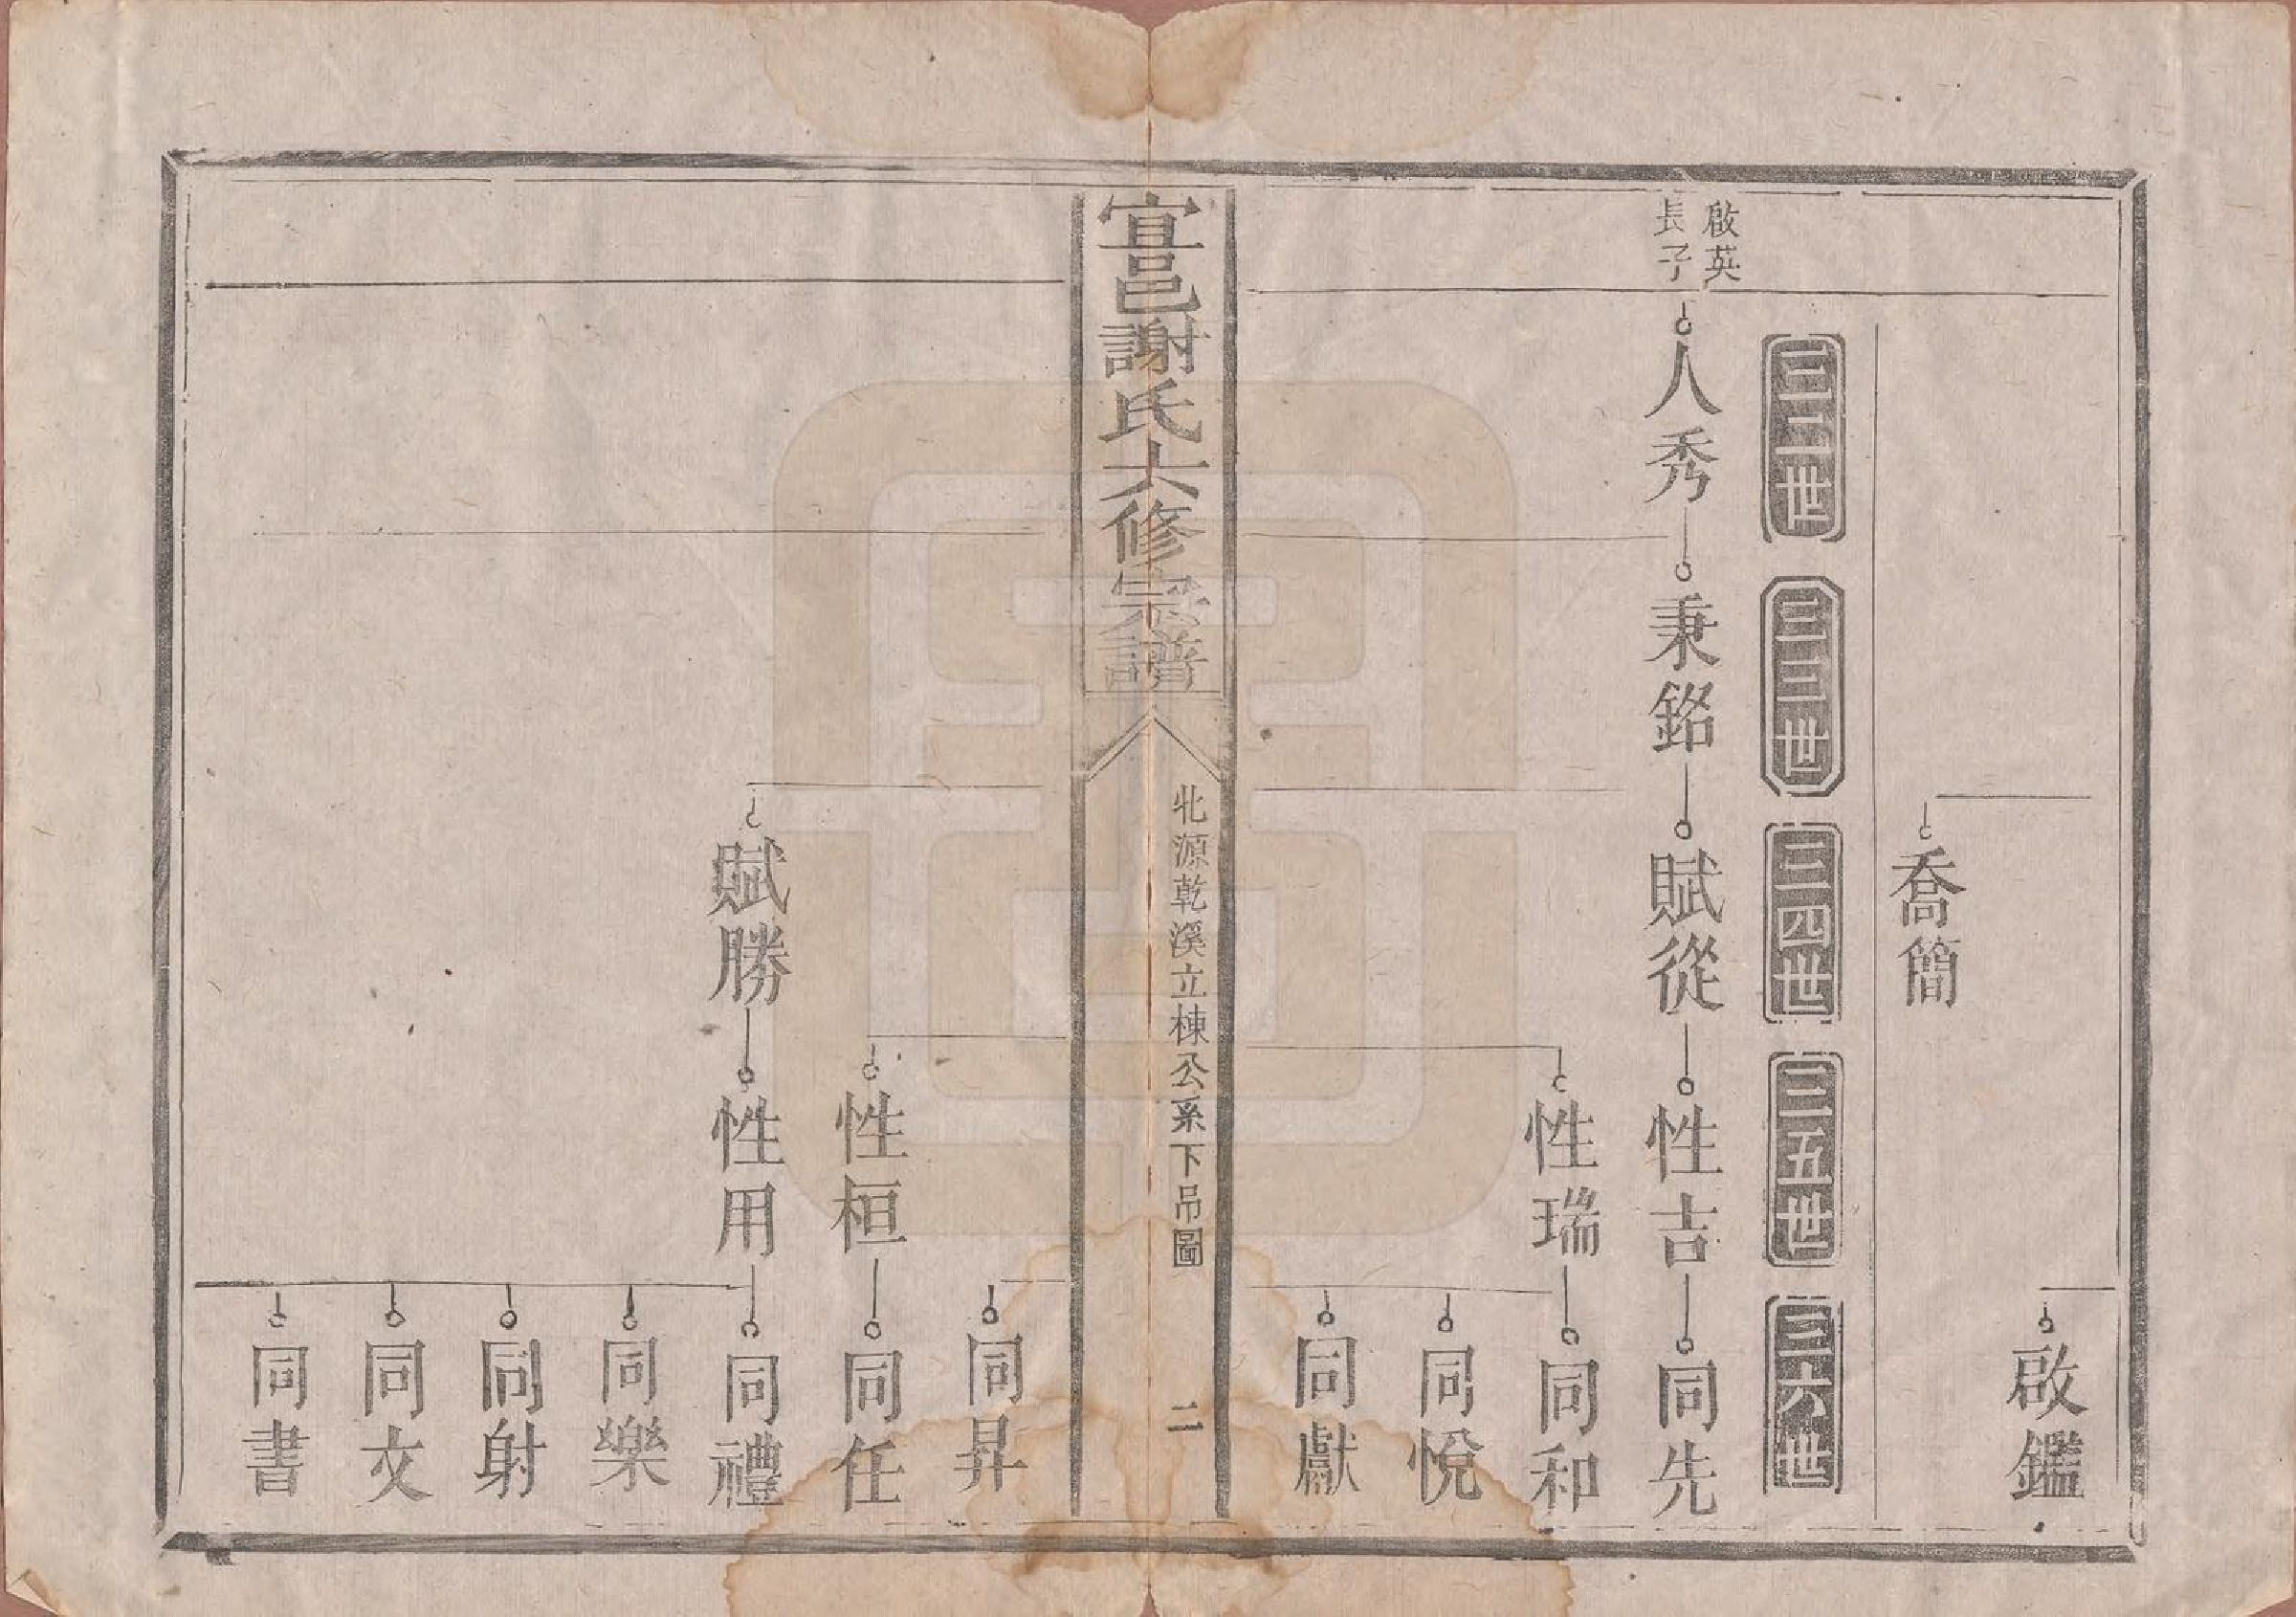 啟鑑
喬簡
三二世
三三世
三四世
三五世
三六世
啟英
長子
人秀
秉銘
賦從
性吉
同先
性瑞
同和
同悅
同獻
宜邑謝氏六修宗譜
北源乾溪立棟公系下吊圖
二
同昇
性桓
同任
賦勝
性用
同禮
同樂
同射
同文
同書